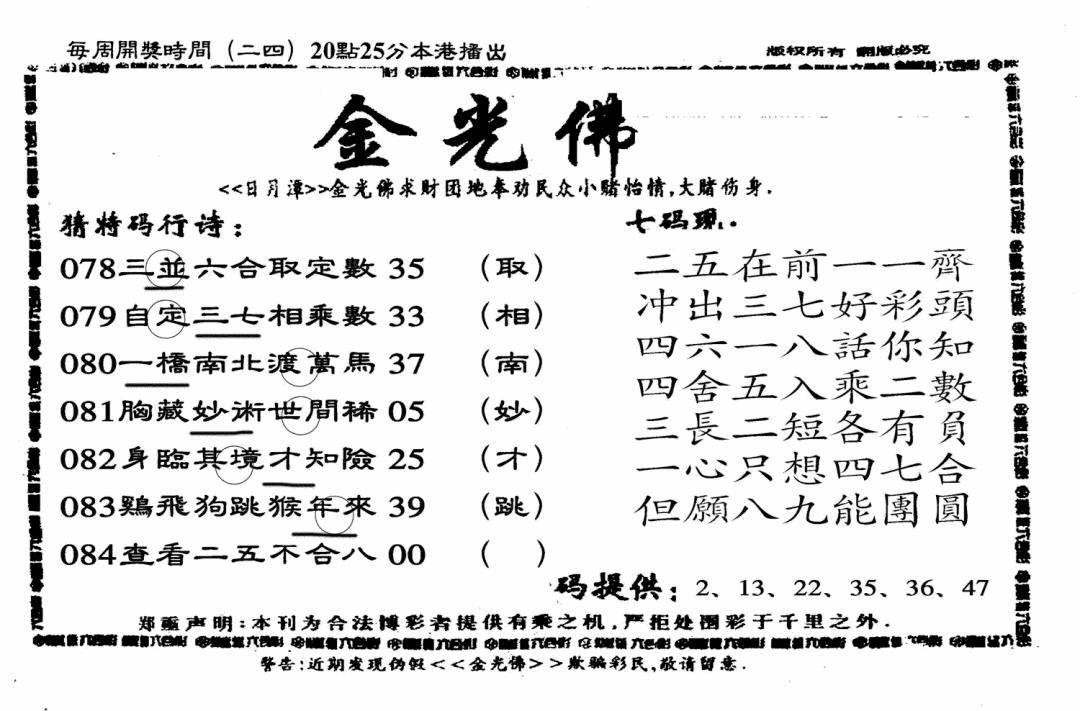 每周開獎時間（二四）20點25分本港播出
版权所有 翻版必究
金光佛
<<日月潭>>金光佛求财团地奉劝民众小赌怡情,大赌伤身.
猜特码行诗：
078三並六合取定數 35 （取）
079自定三七相乘數 33 （相）
080一橋南北渡萬馬 37 （南）
081胸藏妙術世間稀 05 （妙）
082身臨其境才知險 25 （才）
083鷄飛狗跳猴年來 39 （跳）
084查看二五不合八 00 （ ）
七码现..
二五在前一一齊
冲出三七好彩頭
四六一八話你知
四舍五入乘二數
三長二短各有負
一心只想四七合
但願八九能團圓
码提供：2、13、22、35、36、47
郑重声明:本刊为合法博彩者提供有乘之机,严拒处围彩于千里之外.
警告:近期发现伪假<<金光佛>>欺骗彩民,敬请留意.